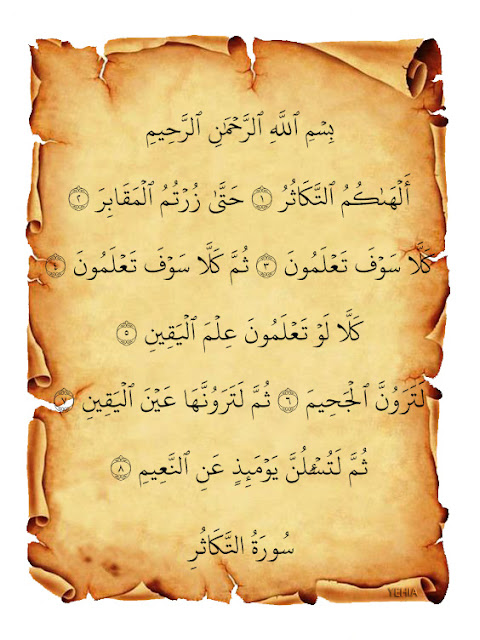 بِسْمِ ٱللَّهِ ٱلرَّحْمَٰنِ ٱلرَّحِيمِ
أَلْهَىٰكُمُ ٱلتَّكَاثُرُ ١ حَتَّىٰ زُرْتُمُ ٱلْمَقَابِرَ ٢
كَلَّا سَوْفَ تَعْلَمُونَ ٣ ثُمَّ كَلَّا سَوْفَ تَعْلَمُونَ ٤
كَلَّا لَوْ تَعْلَمُونَ عِلْمَ ٱلْيَقِينِ ٥
لَتَرَوُنَّ ٱلْجَحِيمَ ٦ ثُمَّ لَتَرَوُنَّهَا عَيْنَ ٱلْيَقِينِ ٧
ثُمَّ لَتُسْـَٔلُنَّ يَوْمَئِذٍ عَنِ ٱلنَّعِيمِ ٨
سُورَةُ التَّكَاثُرِ
YEHIA